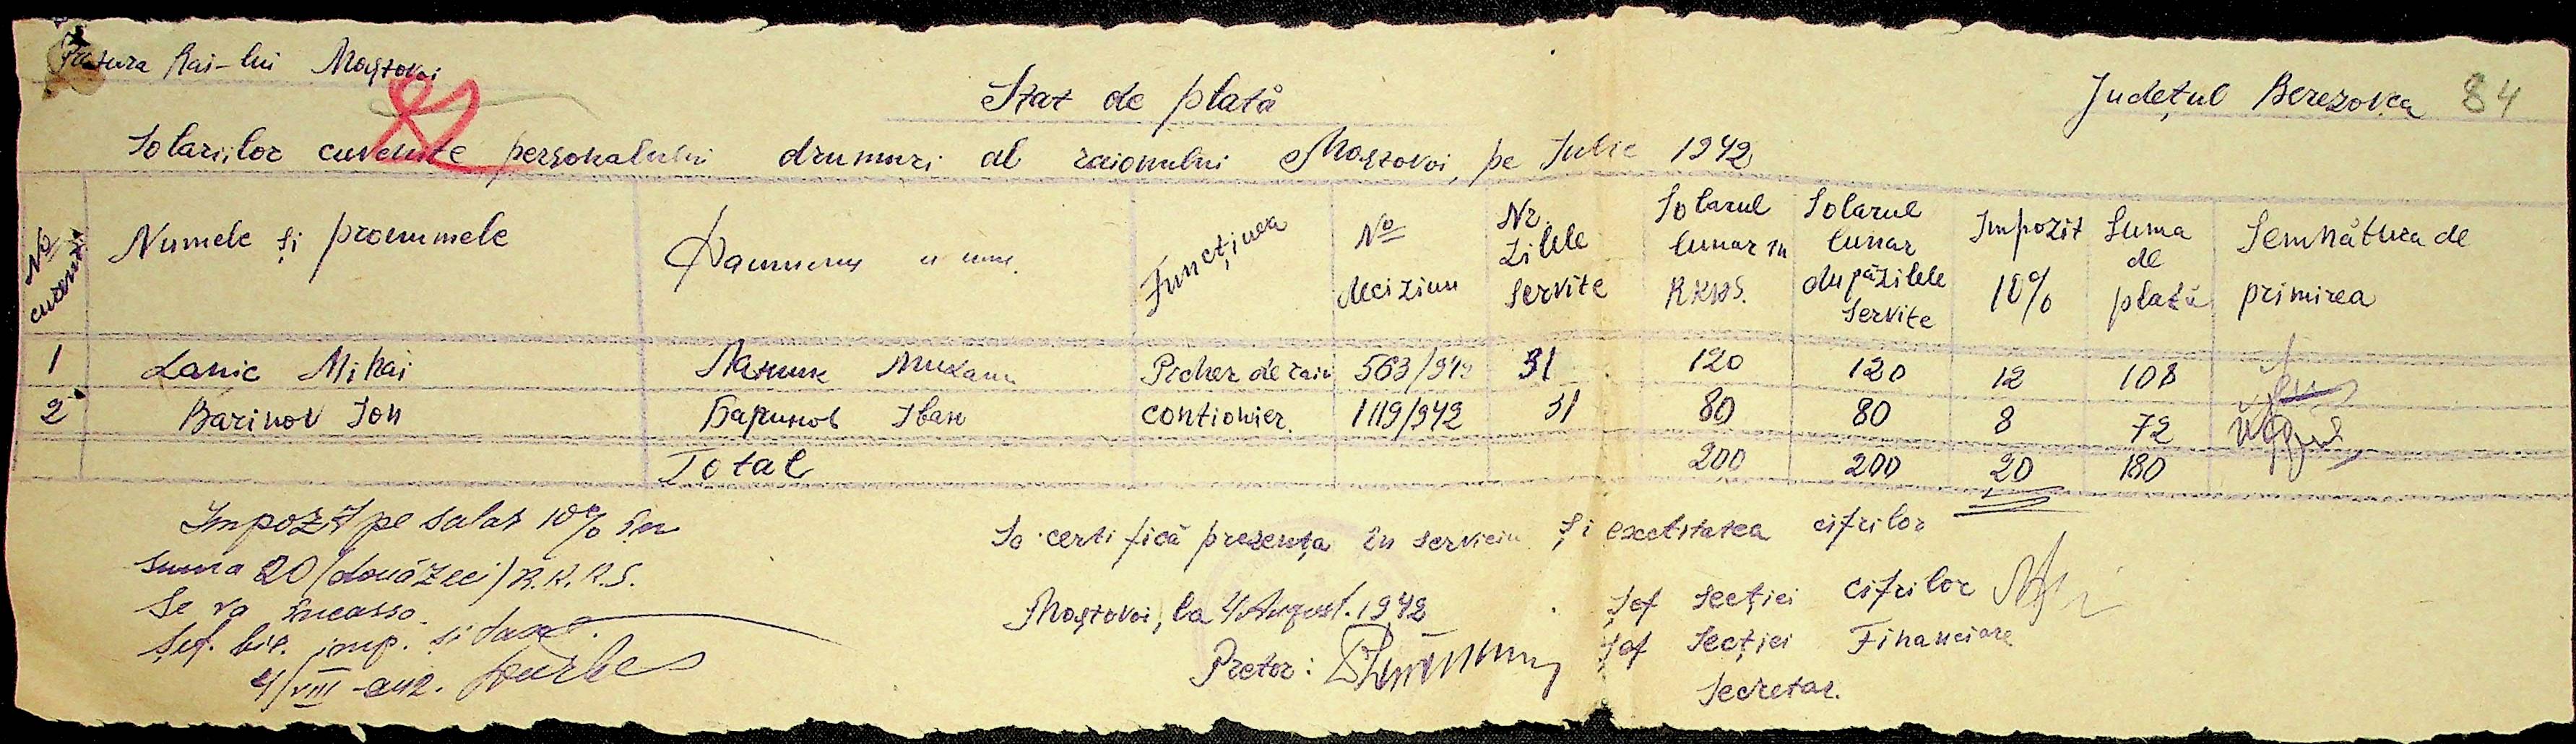 Pretura Rai-lui Mostovoi
Județul Berezovca 84
Stat de plată
Solariilor cuvenite personalului drumuri al raionului Mostovoi, pe Iulie 1942
No curent
Numele și pronumele
Фамилия и имя
Funcțiunea
No Deciziun
Nr. Zilele servite
Solarul lunar în RKKS.
Solarul lunar după zilele servite
Impozit 10%
Suma de plată
Semnătura de primirea
1 Lanic Mihai Ланик Михаил Picher de raion 563/942 31 120 120 12 108
2 Barinov Ion Баринов Іван contionier. 1119/942 31 80 80 8 72
Total 200 200 20 180
Impozit pe salar 10% în
suma 20 (douăzeci) R.K.K.S.
Se va încassa.
Șef. bir. imp. și taxe
4/VIII-942.
Se certifică prezența în serviciu și exactitatea cifrilor
Mostovoi, la 4 August. 1942
Pretor:
Șef secției cifrilor
Șef secției Financiare
Secretar.